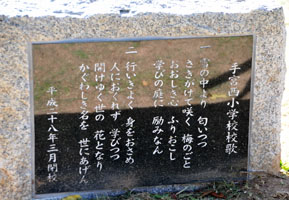 手宮西小学校校歌
一 雪の中より 匂いつつ
さきがけて咲く 梅のごと
おおしさを ふりおこし
学びの庭に 励みなん
二 行いさよく 身をおさめ
人におくれず 学びつつ
開けゆく世の 花となり
かぐわしき名を 世にあげん
平成二十八年三月閉校